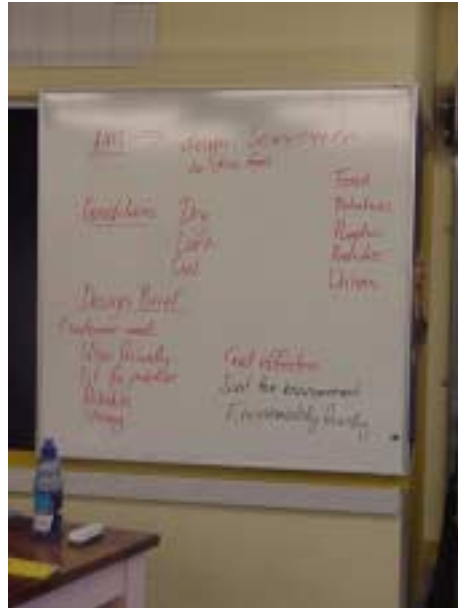 AIM
to store food
Conditions Dry
Dark
Cool
Food
Potatoes
Apples
Onions
Design Brief
Customer need
User friendly
Fit for purpose
Reliable
Strong
Cost effective
Suit the environment
Environmentally friendly